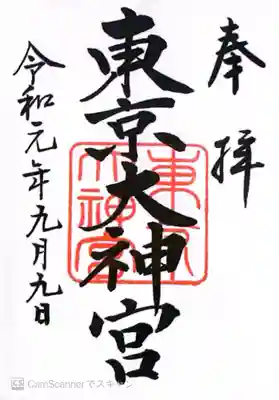 奉拝
東京大神宮
東京大神宮
令和元年九月九日
CS CamScannerでスキャン